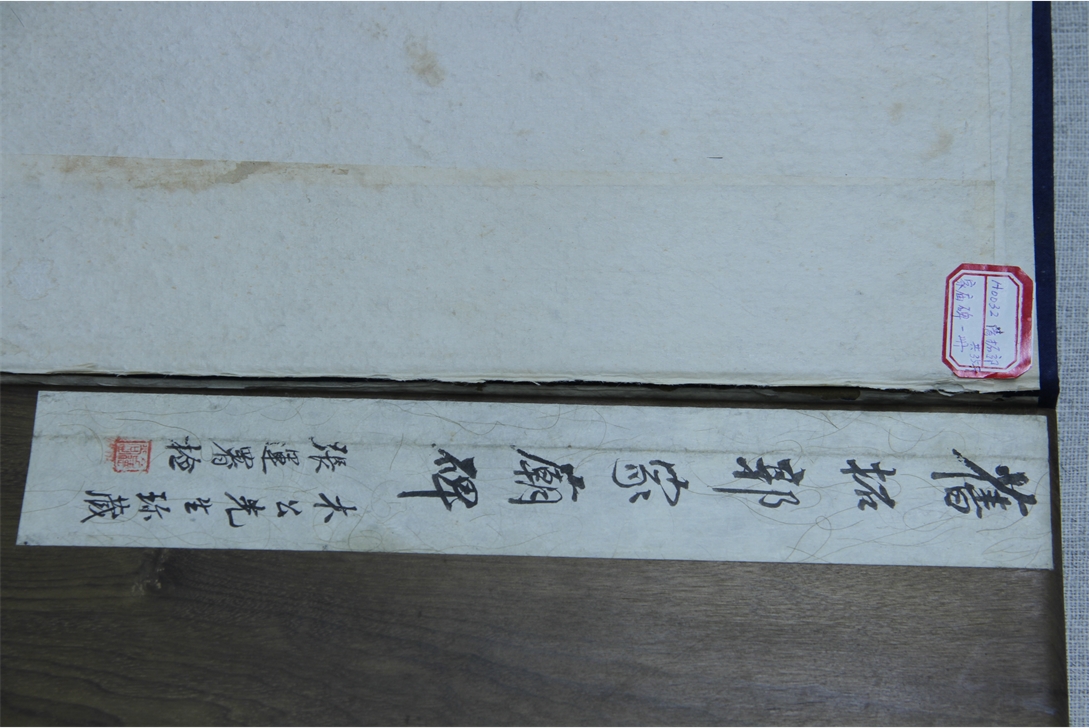 舊拓郭家廟碑
木公先生珍藏
張運署檢
H0032 清拓郭
家庙碑一册